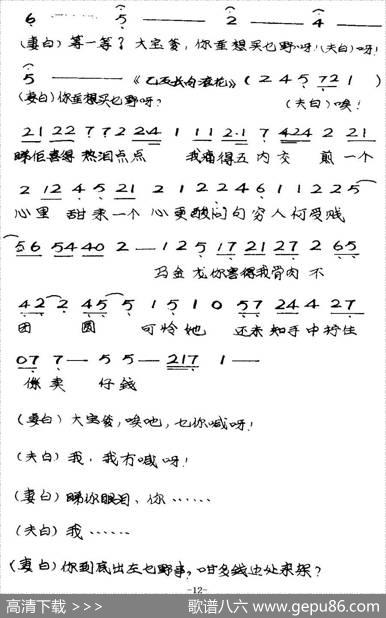 6 —— 5 —— 2 —— 4 ——
(妻白)等一等?大宝爹,你重想买乜野呀!(夫白)呀!
5 ——《乙反长句滚花》(2 4 5 7 2 1)
(妻白)你重想买乜野呀? (夫白)唉!
21 22 7 7 2 2·4 1 11 2·1 7 424 2 21
睇佢喜得热泪点点 我痛得五内交煎一个
2 12 4 5 21 2 1 2 2 4 6 1 1 2 2 5
心里甜来一个心更酸问句穷人何受贱
56 54 40 2 — 1 2 5 17 21 27 2 65
马金龙你害得我骨肉不
42 2 45 5 1 5 1 0 57 24 4 27
团圆可怜她还未知手中拧住
07 7 — 5 5 — 217 1 —
係卖仔钱
(妻白)大宝爹,唉吔,乜你喊呀!
(夫白)我,我冇喊呀!
(妻白)睇你眼泪,你……
(夫白)我……
(妻白)你到底出左乜野事,咁多钱边处来㗎?
-12-
高清下载 >>> 歌谱八六 www.gepu86.com